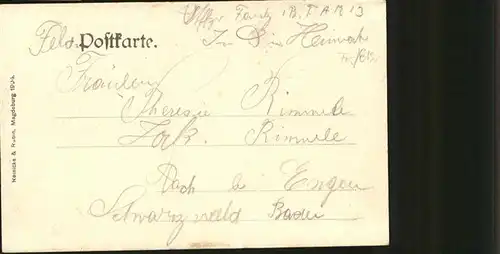 Feldpostkarte.
In die Heimat
Fräulein
Theresia Rimmele
Jak. Rimmele
Aach b. Engen
Schwarzwald Baden
Reinicke & Rubin, Magdeburg 1904.